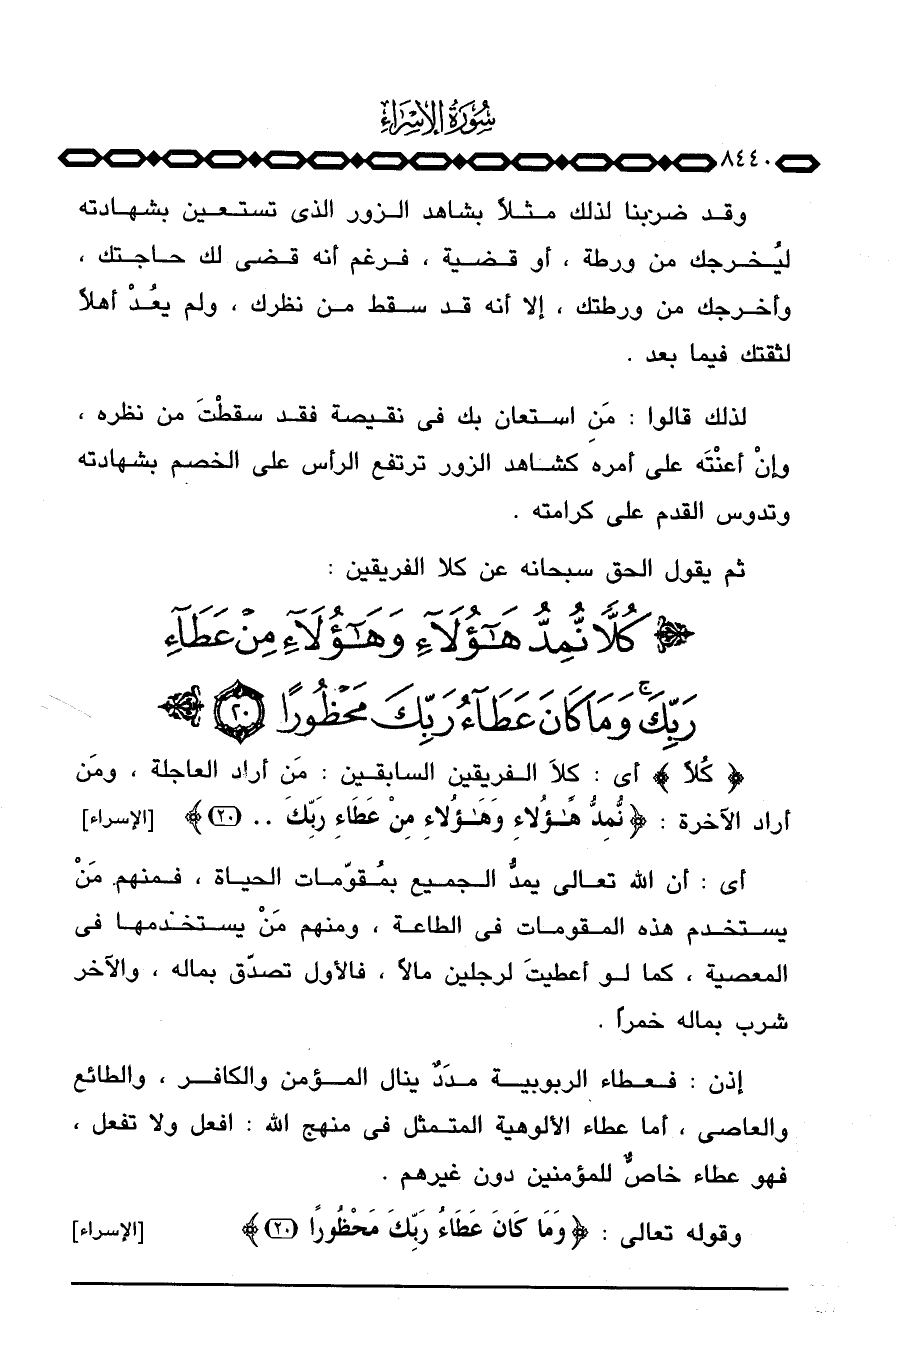 سُورَةُ الإِسْرَاءِ
٨٤٤٠
وقد ضربنا لذلك مثلاً بشاهد الزور الذى تستعين بشهادته
ليُخرجك من ورطة ، أو قضية ، فرغم أنه قضى لك حاجتك ،
وأخرجك من ورطتك ، إلا أنه قد سقط من نظرك ، ولم يعُدْ أهلاً
لثقتك فيما بعد .
لذلك قالوا : مَن استعان بك فى نقيصة فقد سقطْتَ من نظره ،
وإنْ أعنْتَه على أمره كشاهد الزور ترتفع الرأس على الخصم بشهادته
وتدوس القدم على كرامته .
ثم يقول الحق سبحانه عن كلا الفريقين :
كُلًّا نُّمِدُّ هَٰٓؤُلَآءِ وَهَٰٓؤُلَآءِ مِنْ عَطَآءِ
رَبِّكَۚ وَمَا كَانَ عَطَآءُ رَبِّكَ مَحْظُورًا ٢٠
﴿ كُلاً ﴾ أى : كلاَ الفريقين السابقين : مَن أراد العاجلة ، ومَن
أراد الآخرة : ﴿ نُّمِدُّ هَٰؤُلاءِ وَهَٰؤُلاءِ مِنْ عَطَاءِ رَبِّكَ .. (٢٠) ﴾ [الإسراء]
أى : أن الله تعالى يمدُّ الجميع بمُقوّمات الحياة ، فمنهم مَنْ
يستخدم هذه المقومات فى الطاعة ، ومنهم مَنْ يستخدمها فى
المعصية ، كما لو أعطيتَ لرجلين مالاً ، فالأول تصدّق بماله ، والآخر
شرب بماله خمراً .
إذن : فعطاء الربوبية مدَدٌ ينال المؤمن والكافر ، والطائع
والعاصى ، أما عطاء الألوهية المتمثل فى منهج الله : افعل ولا تفعل ،
فهو عطاء خاصٌّ للمؤمنين دون غيرهم .
وقوله تعالى : ﴿ وَمَا كَانَ عَطَاءُ رَبِّكَ مَحْظُورًا (٢٠) ﴾ [الإسراء]